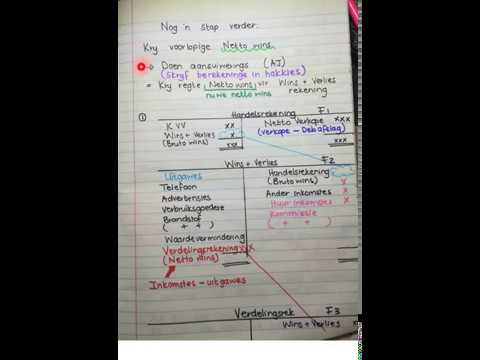 Nog 'n stap verder.
Kry voorlopige Netto wins
→ Doen aansuiwerings (AJ)
(Skryf berekenings in hakkies)
= Kry regte Netto wins vir Wins + Verlies
nuwe netto wins rekening
① Handelsrekening F1
KVV xxx Netto Verkope xxx
Wins + Verlies xx (Verkope – Deb afslag)
(Bruto wins) xxx xxx
Wins + Verlies F2
Uitgawes Handelsrekening
Telefoon (Bruto wins) x
Advertensies Ander inkomstes x
Verbruiksgoedere Huur inkomstes x
Brandstof Kommissie
( + + ) ( + + )
Waardevermindering
Verdelingsrekening xxx
(Netto wins)
Inkomstes – uitgawes
Verdelingsrek F3
Wins + Verlies